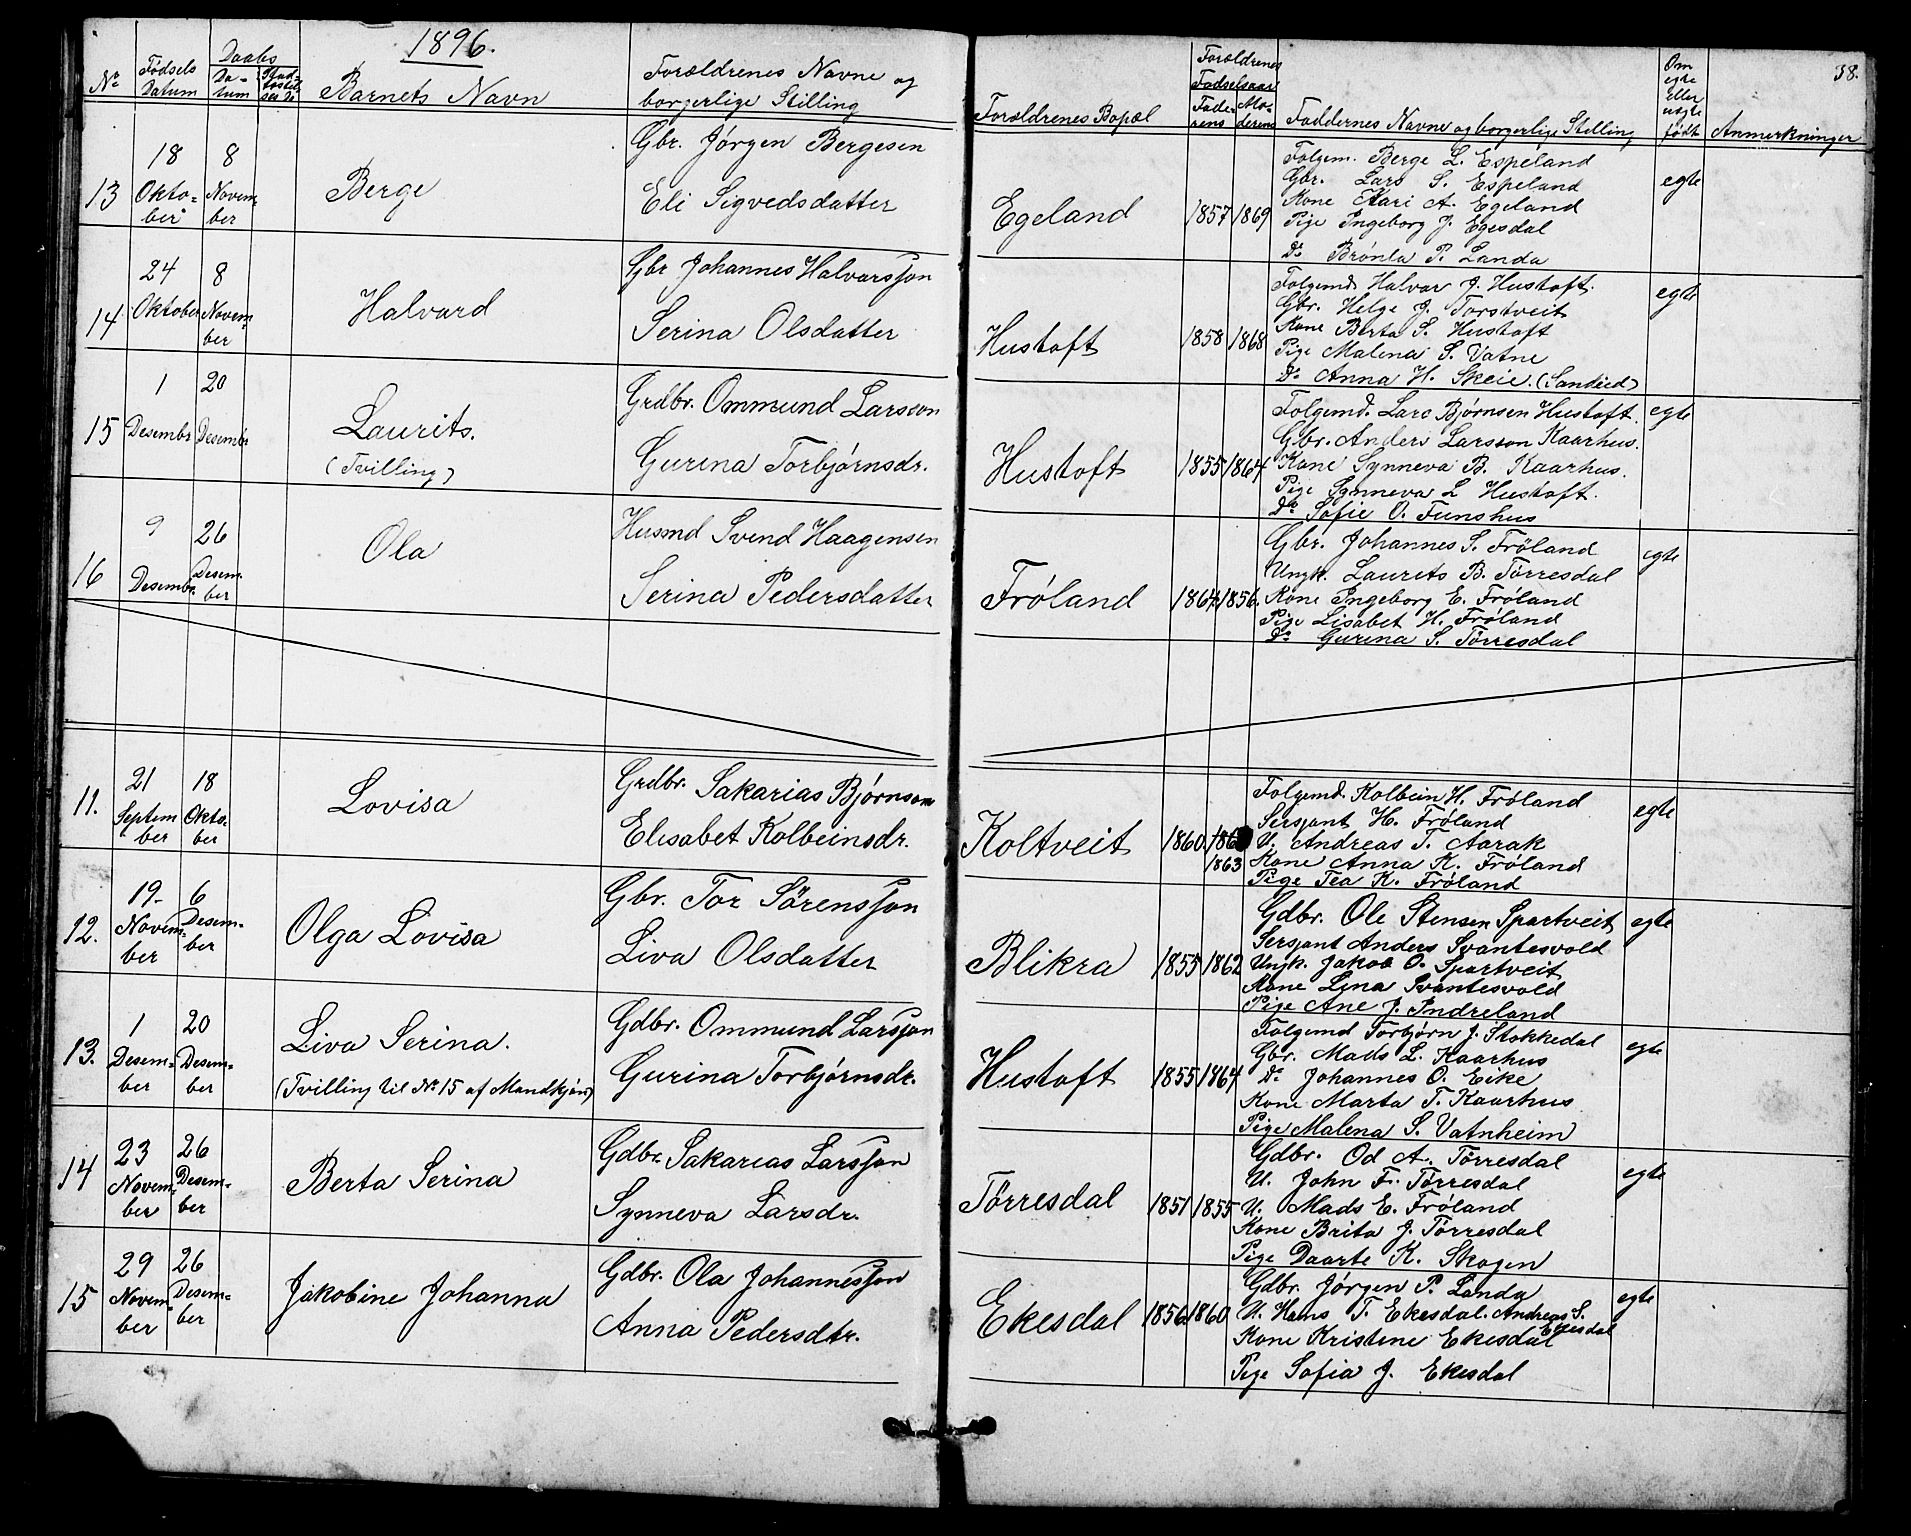 1896.
38.
No
Fødsels Datum
Daabs
Da-tum
Barnets Navn
Forældrenes Navne og borgerlige Stilling
Forældrenes Bopæl
Forældrenes Fødselsaar
Fade-rens
Mo-derens
Faddernes Navne og borgerlige Stilling
Om egte eller uegte født
Anmerkninger
13
18 Okto-ber
8 Novem-ber
Berge
Gbr. Jørgen Bergesen
Eli Sigvedsdatter
Egeland
1857
1869
Folgem. Berge L. Espeland
Gbr. Lars S. Espeland
Kone Kari A. Egeland
Pige Ingeborg J. Egesdal
Do Brønla P. Landa
egte
14
24 Oktober
8 Novem-ber
Halvard
Gbr Johannes Halvarsson
Serina Olsdatter
Hustoft
1858
1868
Folgemd Halvar J. Hustoft.
Gbr. Helge J. Torstveit
Kone Berta S. Hustoft
Pige Malena S. Vatne
Do Anna H. Skeie. (Sandeid)
egte
15
1 Desembr
20 Desembr
Laurits.
(Tvilling)
Grdbr. Ommund Larsson
Gurina Torbjørnsdr.
Hustoft
1855
1864
Folgemd. Lars Bjørnsen Hustoft.
Gbr. Anders Larsson Kaarhus.
Kone Synneva B. Kaarhus.
Pige Synneva L Hustoft.
Do Sofie O. Funshus
egte
16
9 Desembr.
26 Desem-ber
Ola
Husmd Svend Haagensen
Serina Pedersdatter
Frøland
1864
1856.
Gbr. Johannes S. Frøland
Ungk. Laurits B. Tørresdal
Kone Ingeborg E. Frøland
Pige Lisabet H. Frøland
Do Gurina S. Tørresdal
egte
11.
21 Septem-ber
18 Okto-ber
Lovisa
Grdbr. Sakarias Bjørnson
Elisabet Kolbeinsdr.
Koltveit
1860
1863
Folgemd. Kolbein H. Frøland
Sersjant H. Frøland
U. Andreas T. Aarak
Kone Anna K. Frøland
Pige Tea K. Frøland
egte
12.
19. Novem-ber
6 Desem-ber
Olga Lovisa
Gbr. Tor Sørensson
Liva Olsdatter
Blikra
1855
1862
Gdbr. Ole Stensen Spartveit
Sersjant Anders Svantesvold
Ungk. Jakob O. Spartveit
Kone Lina Svantesvold
Pige Ane J. Indreland
egte
13.
1 Desem-ber
20 Desem-ber
Liva Serina.
(Tvilling til No 15 af Mandkjøn)
Gdbr. Ommund Larsson
Gurina Torbjørnsdr.
Hustoft
1855
1864
Folgemd Torbjørn J. Stokkedal
Gbr. Mads L. Kaarhus
Do Johannes O. Eike
Kone Marta T. Kaarhus
Pige Malena S. Vatnheim
egte
14
23 Novem-ber
26 Desem-ber
Berta Serina
Gdbr. Sakarias Larsson
Synneva Larsdr.
Tørresdal
1851
1855
Gdbr. Od A. Tørresdal
U. John F. Tørresdal
U. Mads E. Frøland
Kone Brita J. Tørresdal
Pige Daarte K. Skogen
egte
15
29 Novem-ber
26 Desem-ber
Jakobine Johanna
Gdbr. Ola Johannesson
Anna Pedersdtr.
Ekesdal
1856
1860
Gdbr. Jørgen P. Landa
U. Hans T. Ekesdal. Andreas S. Ekesdal
Kone Kristene Ekesdal
Pige Sofia J. Ekesdal
egte